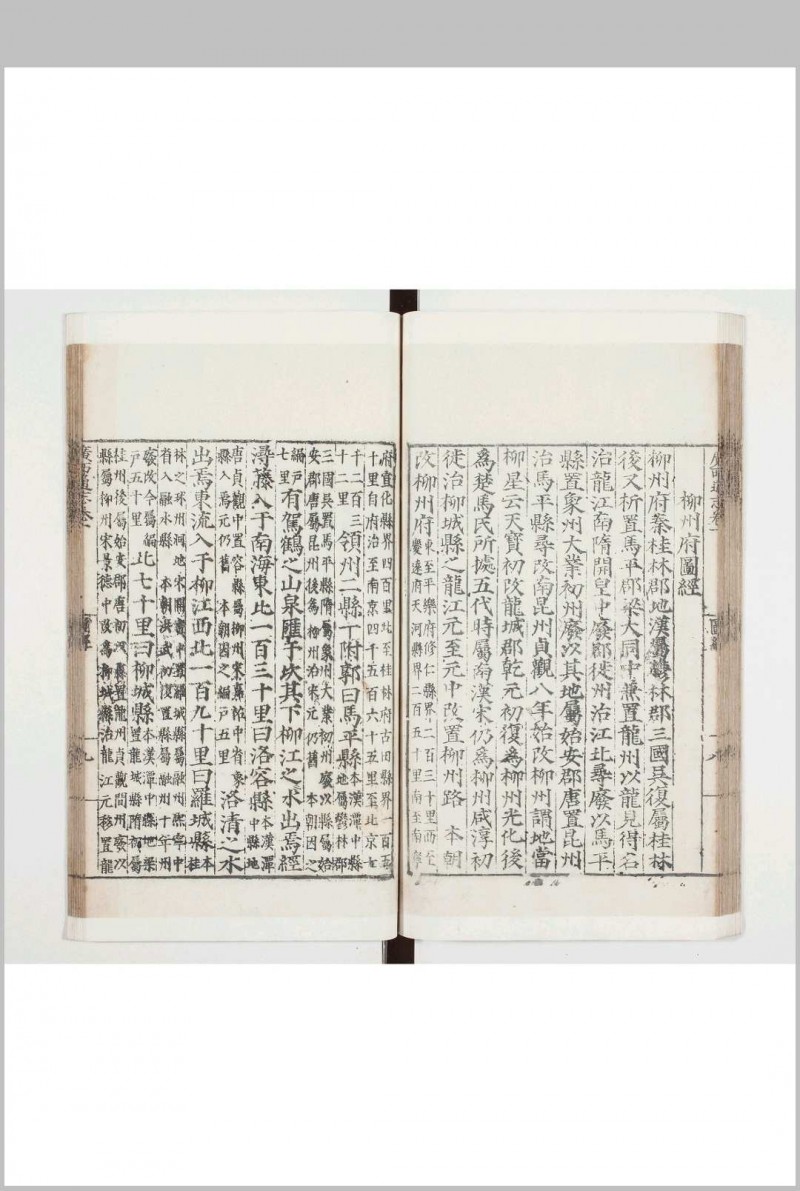 柳州府圖經
柳州府秦桂林郡地漢屬鬱林郡三國吳復屬桂林
後又析置馬平郡梁大同中兼置龍州以龍見得名
治龍江南隋開皇中廢郡徙州治江北尋廢以馬平
縣置象州大業初州廢以其地屬始安郡唐置昆州
治馬平縣尋改南昆州貞觀八年始改柳州謂地當
柳星云天寶初改龍城郡乾元初復為柳州光化後
為楚馬氏所據五代時屬南漢宋仍為柳州咸淳初
徙治柳城縣之龍江元至元中改置柳州路 本朝
改柳州府東至平樂府修仁縣界二百三十里西至
慶遠府天河縣界二百五十里南至南寧
府宜化縣界四百里北至桂林府古田縣界一百五
十里自府治至南京四千五百六十五里至北京七
千二百三
十二里領州二縣十附郭曰馬平縣本漢潭中縣
地屬鬱林郡
三國吳置馬平縣隋屬象州大業初州廢以縣屬始
安郡唐屬昆州後為柳州治宋元仍舊 本朝因之
編戶
七里有駕鶴之山泉匯于坎其下柳江之水出焉經
潯藤入于南海東北一百三十里曰洛容縣本漢潭
中縣地
唐貞觀中置容縣屬柳州宋嘉祐中省象
縣入焉元仍舊 本朝因之編戶五里洛清之水
出焉東流入于柳江西北一百九十里曰羅城縣本
桂
林之琳州洞地宋開寶中置羅城縣屬融州熙寧中
省入融水縣 本朝洪武初復置縣屬融州十年州
廢改今屬編
戶五十里北七十里曰柳城縣本漢潭中縣地梁
置龍城縣隋初屬
桂州後屬始安郡唐初以縣置龍州貞觀間州廢以
縣屬柳州宋景德中改為柳城縣治龍江元移置龍
廣西通志卷一
圖經
九